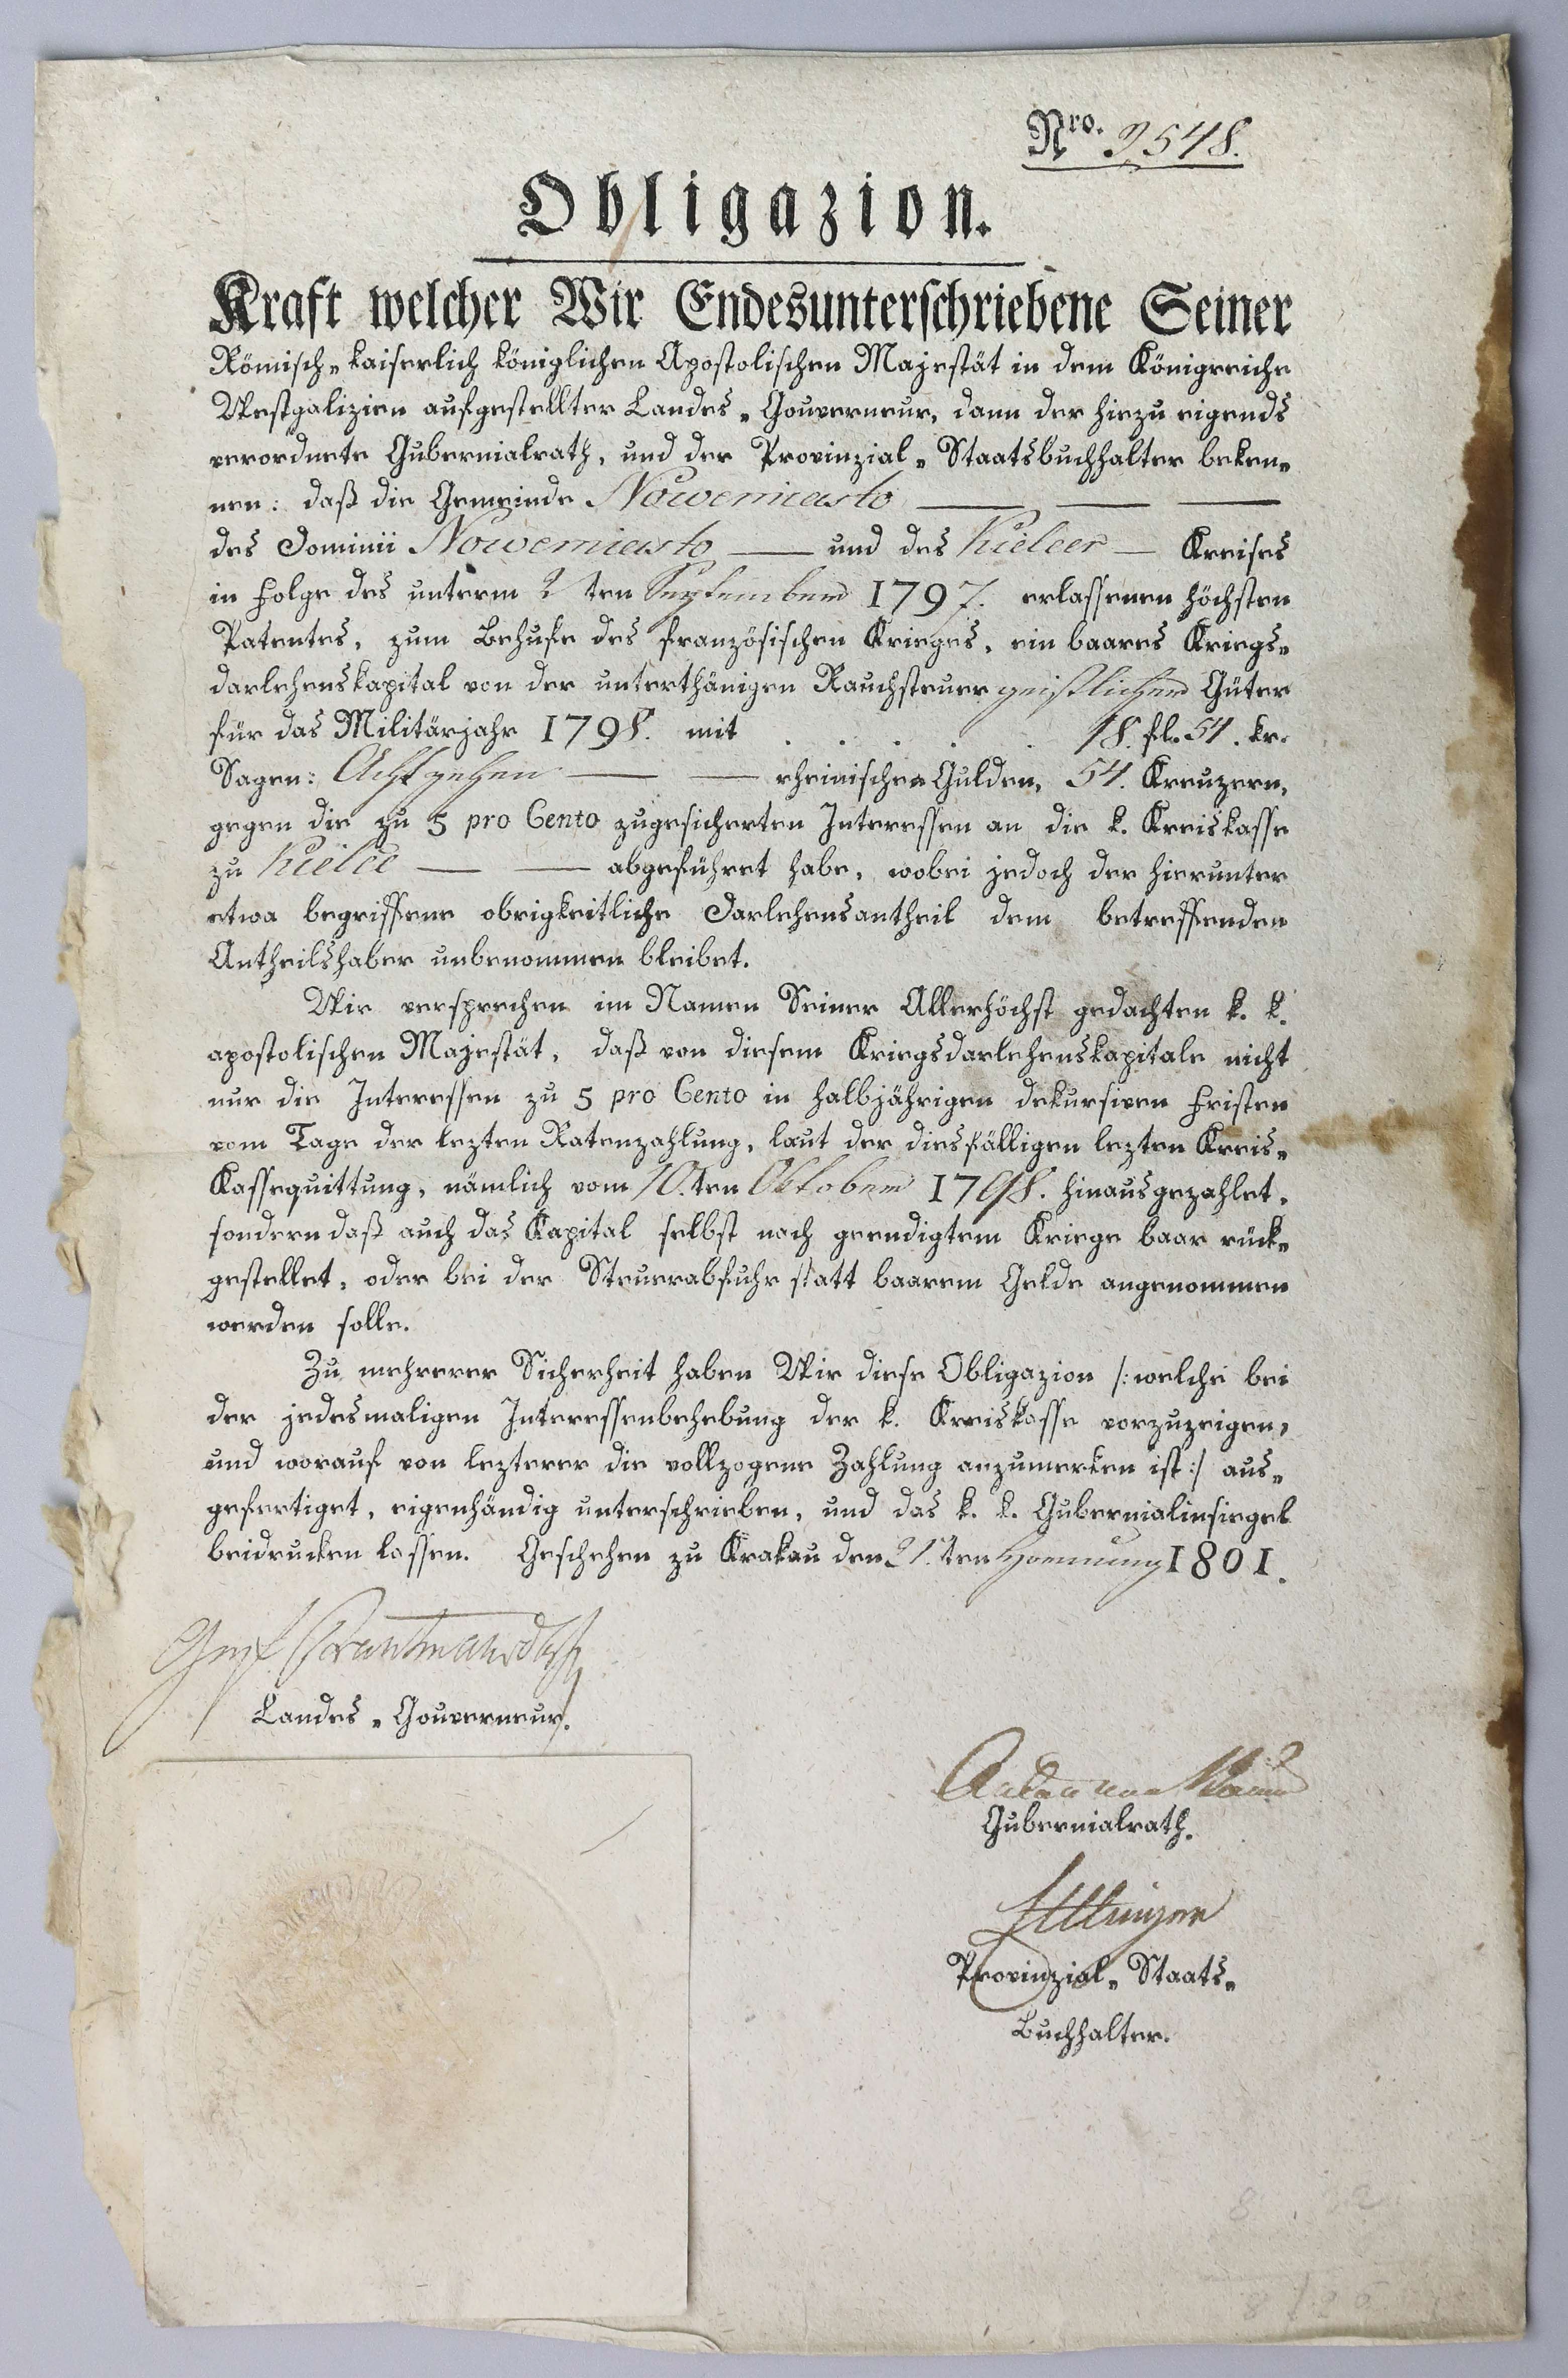 Nro. 2548.
Obligazion.
Kraft welcher Wir Endesunterschriebene Seiner
Römisch-kaiserlich königlichen Apostolischen Majestät in dem Königreiche
Westgalizien aufgestellter Landes-Gouverneur, dann der hiezu eigends
verordnete Gubernialrath, und der Provinzial-Staatsbuchhalter beken-
nen: daß die Gemeinde Nowemiasto
des Dominii Nowemiasto und des Kielcer Kreises
in Folge des unterm 2ten September 1797. erlassenen höchsten
Patentes, zum Behufe des französischen Krieges, ein baares Kriegs-
darlehenskapital von der unterthänigen Rauchsteuer geistlicher Güter
für das Militärjahr 1798. mit . . . . . 18. fl. 54. kr.
Sagen: Achtzehen rheinische Gulden, 54. Kreuzern,
gegen die zu 5 pro Cento zugesicherten Interessen an die k. Kreiskasse
zu Kielce abgeführet habe, wobei jedoch der hierunter
etwa begriffene obrigkeitliche Darlehensantheil dem betreffenden
Antheilshaber unbenommen bleibet.
Wir versprechen im Namen Seiner Allerhöchst gedachten k. k.
apostolischen Majestät, daß von diesem Kriegsdarlehenskapitale nicht
nur die Interessen zu 5 pro Cento in halbjährigen dekursiven Fristen
vom Tage der lezten Ratenzahlung, laut der diesfälligen lezten Kreis-
Kassequittung, nämlich vom 10.ten Oktober 1798. hinausgezahlet,
sondern daß auch das Kapital selbst nach geendigtem Kriege baar rück-
gestellet, oder bei der Steuerabfuhr statt baarem Gelde angenommen
werden solle.
Zu mehrerer Sicherheit haben Wir diese Obligazion /: welche bei
der jedesmaligen Interessenbehebung der k. Kreiskasse vorzuzeigen,
und worauf von lezterer die vollzogene Zahlung anzumerken ist :/ aus-
gefertiget, eigenhändig unterschrieben, und das k. k. Gubernialinsiegel
beidrucken lassen. Geschehen zu Krakau den 21.ten Hornung 1801.
Graf Trautmansdorff
Landes-Gouverneur.
Gubernialrath.
Provinzial-Staats-
Buchhalter.